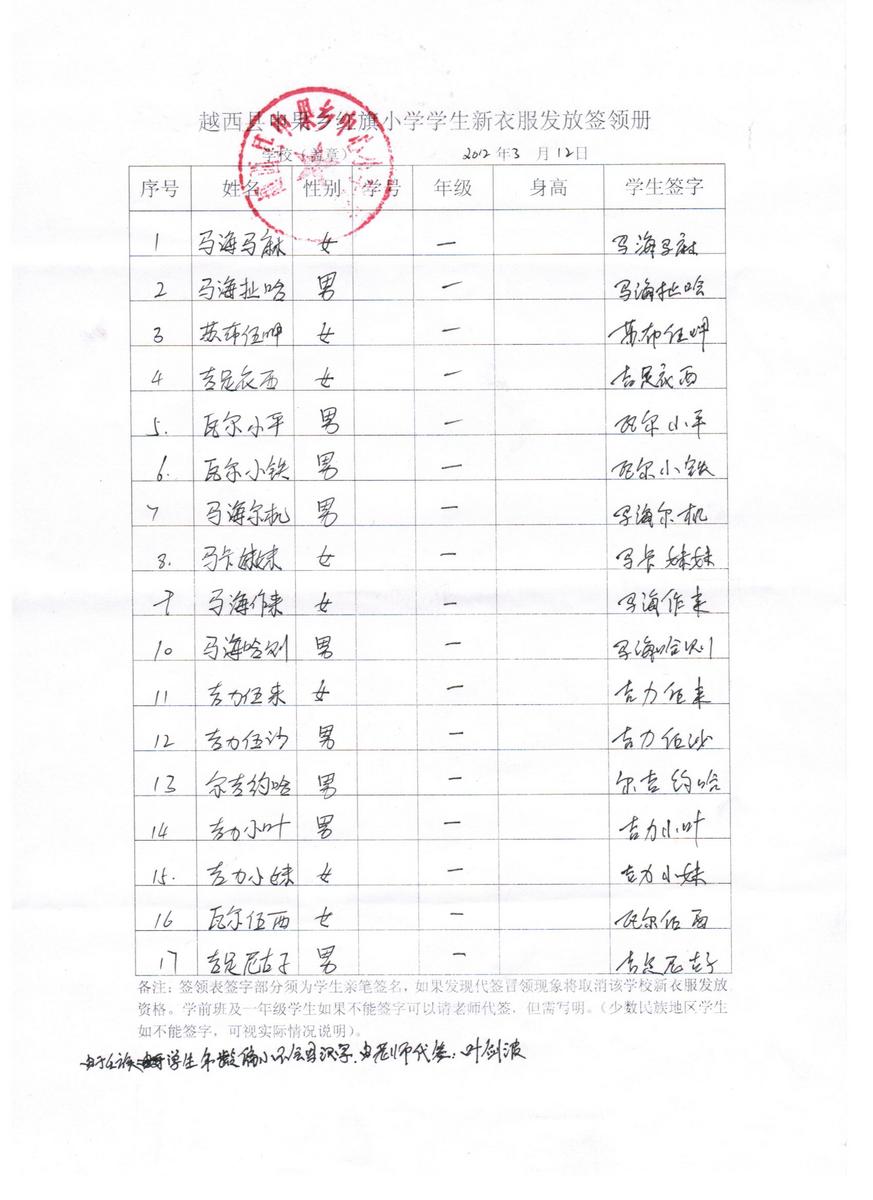 越西县中果乡红旗小学学生新衣服发放签领册
学校（盖章） 2012年3月12日
序号 姓名 性别 学号 年级 身高 学生签字
1 马海马麻 女 一 马海马麻
2 马海扯哈 男 一 马海扯哈
3 苏布伍呷 女 一 苏布伍呷
4 吉足衣西 女 一 吉足衣西
5. 瓦尔小平 男 一 瓦尔小平
6. 瓦尔小铁 男 一 瓦尔小铁
7 马海尔机 男 一 马海尔机
8. 马卡妹妹 女 一 马卡妹妹
9 马海作来 女 一 马海作来
10 马海哈则 男 一 马海哈则
11 吉力伍来 女 一 吉力伍来
12 吉力伍沙 男 一 吉力伍沙
13 尔吉约哈 男 一 尔吉约哈
14 吉力小叶 男 一 吉力小叶
15. 吉力小妹 女 一 吉力小妹
16 瓦尔伍西 女 一 瓦尔伍西
17 吉足尼古子 男 一 吉足尼古子
备注：签领表签字部分须为学生亲笔签名，如果发现代签冒领现象将取消该学校新衣服发放
资格。学前班及一年级学生如果不能签字可以请老师代签，但需写明。（少数民族地区学生
如不能签字，可视实际情况说明）。
学生年龄偏小不会写汉字，由老师代签：叶剑波